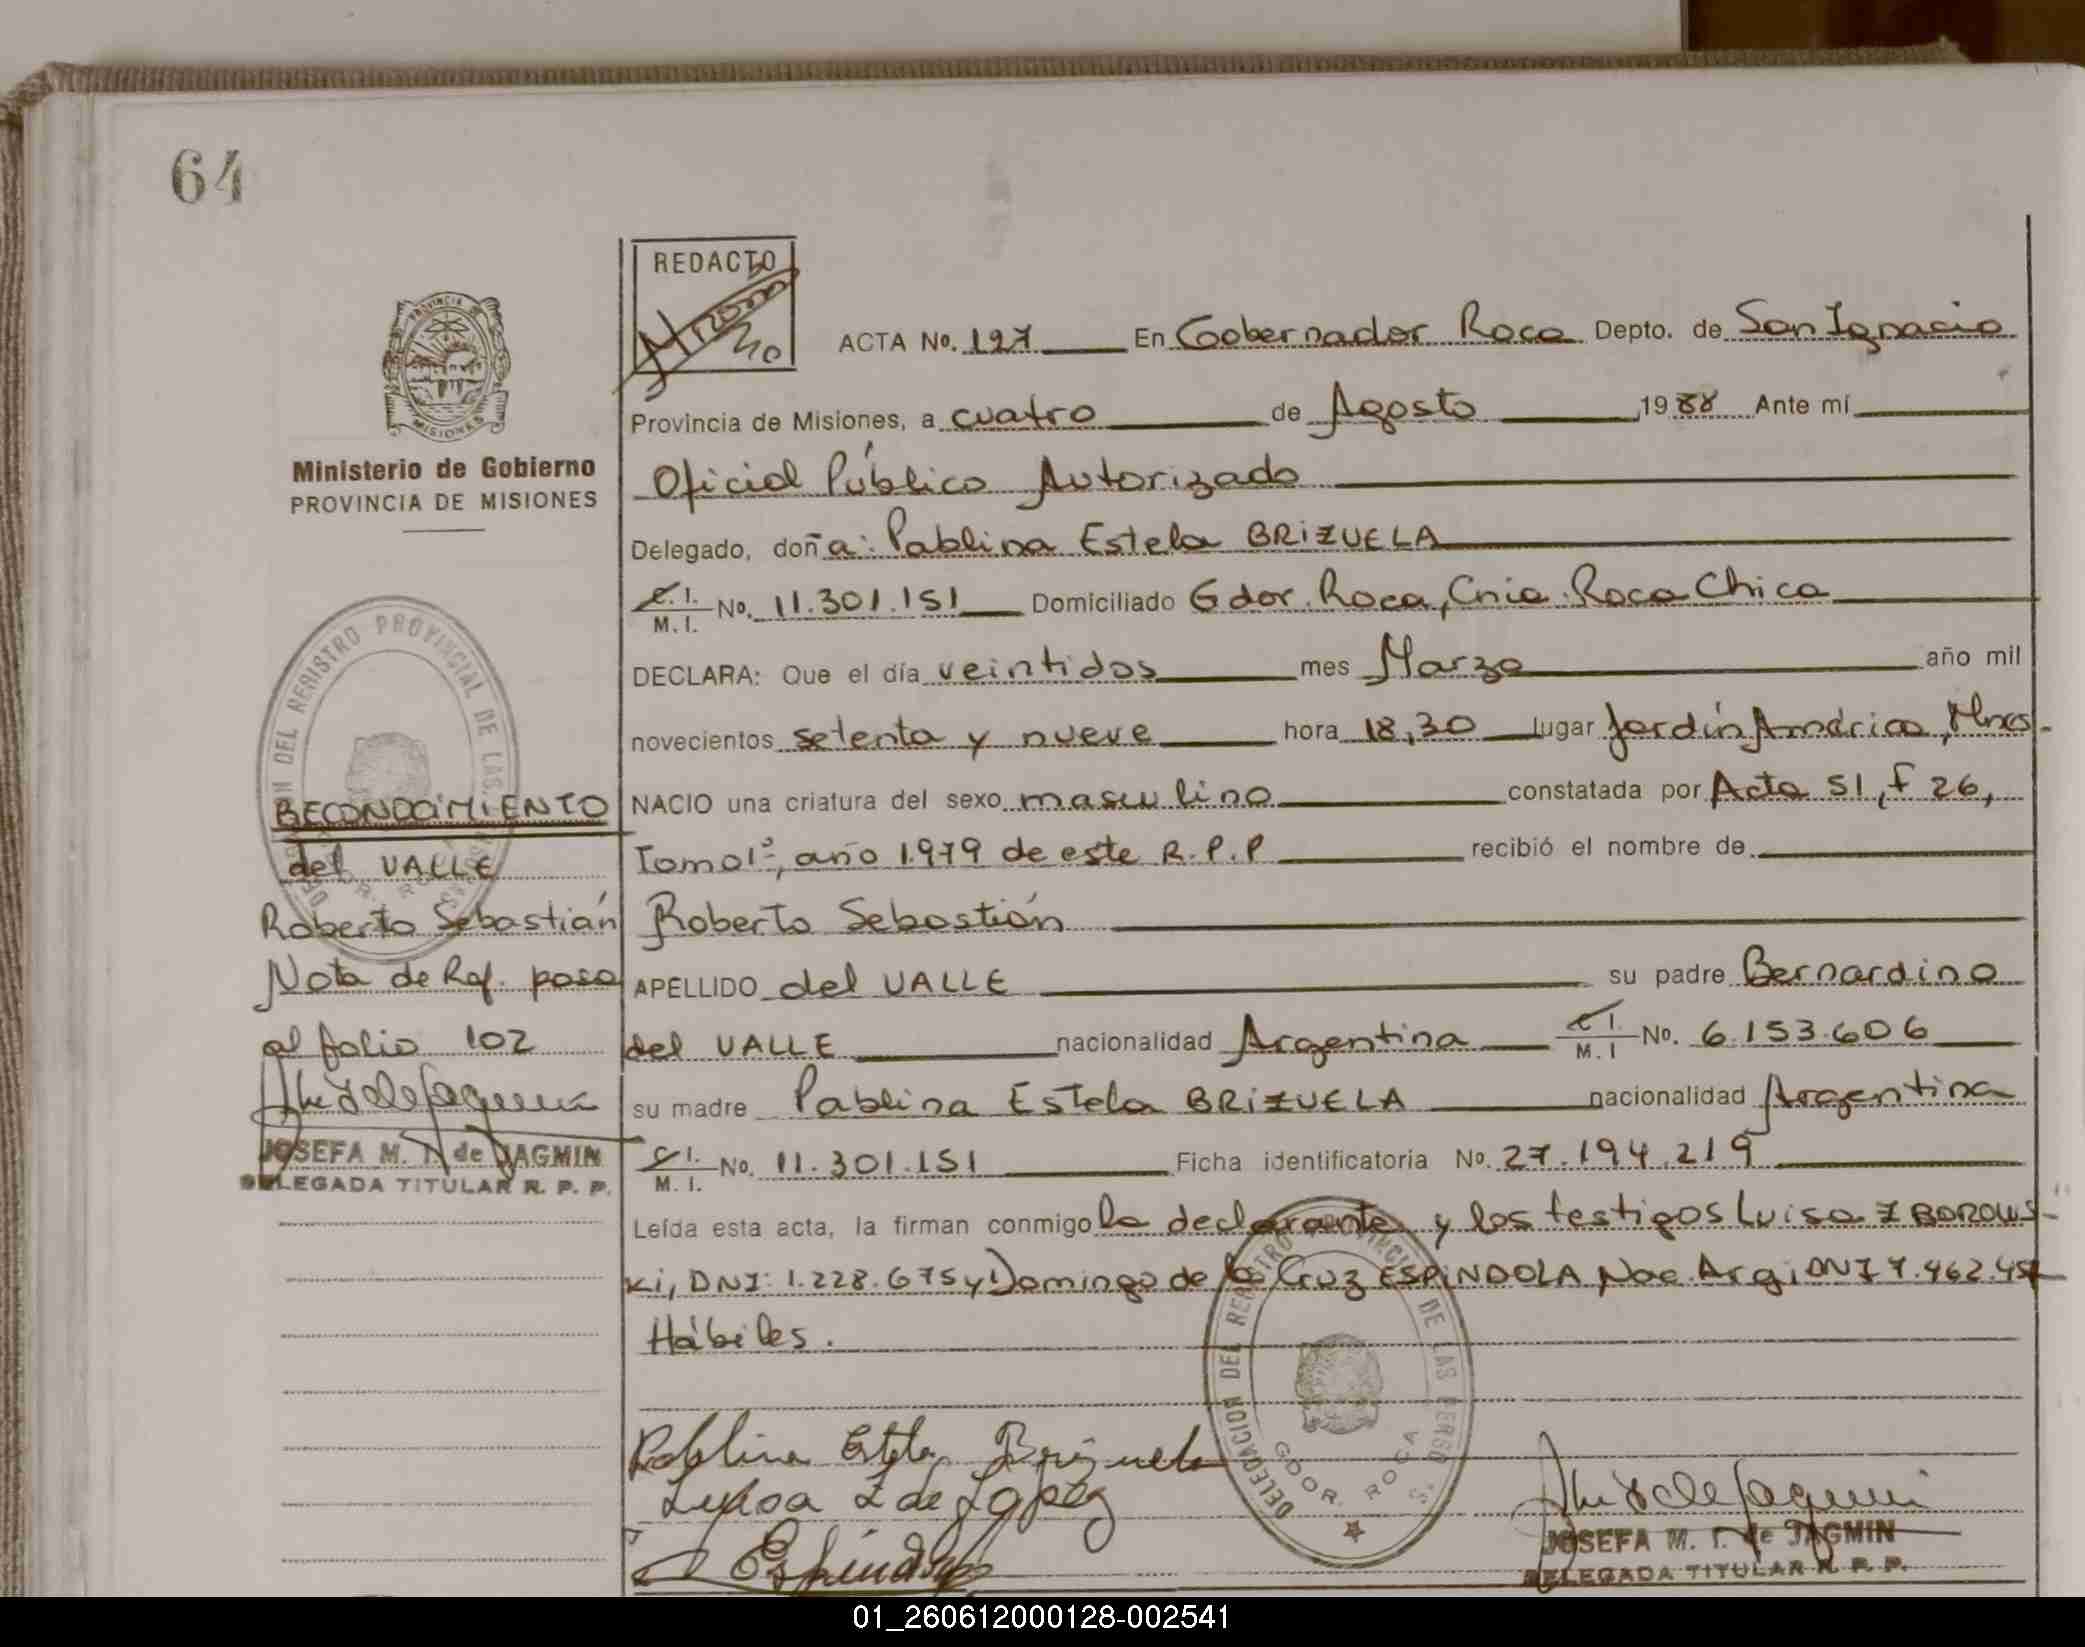 64
REDACTO
ACTA No. 127 En Gobernador Roca Depto. de San Ignacio
Provincia de Misiones, a cuatro de Agosto 1988 Ante mí
Oficial Público Autorizado
Delegado, doña: Pablina Estela BRIZUELA
C. I. M. I. No. 11.301.151 Domiciliado Gdor. Roca, Cnia. Roca Chica
DECLARA: Que el día veintidos mes Marzo año mil
novecientos setenta y nueve hora 18,30 lugar Jardín América, Mnes-
NACIO una criatura del sexo masculino constatada por Acta 51, f 26,
Tomo 1º, año 1.979 de este R.P.P recibió el nombre de
Roberto Sebastián
APELLIDO del VALLE su padre Bernardino
del VALLE nacionalidad Argentina C. I. M. I No. 6.153.606
su madre Pablina Estela BRIZUELA nacionalidad Argentina
C. I. M. I. No. 11.301.151 Ficha identificatoria No. 27.194.219
Leída esta acta, la firman conmigo la declarante y los testigos Luisa ZBOROWS-
Ki, DNI: 1.228.675 y Domingo de la Cruz ESPINDOLA, Nac. Arg. DNI 7.462.454
Hábiles.
Pablina Estela Brizuela
Luisa Z de Lopez
Espindola
JOSEFA M. T. de JAGMIN
DELEGADA TITULAR R. P. P.
DELEGACION DEL REGISTRO PROVINCIAL DE LAS PERSONAS
GDOR. ROCA
PROVINCIA DE
MISIONES
Ministerio de Gobierno
PROVINCIA DE MISIONES
DELEGACION DEL REGISTRO PROVINCIAL DE LAS PERSONAS
GDOR. ROCA
RECONOCIMIENTO
del VALLE
Roberto Sebastián
Nota de Ref. pasa
al folio 102
JOSEFA M. T. de JAGMIN
DELEGADA TITULAR R. P. P.
01_260612000128-002541